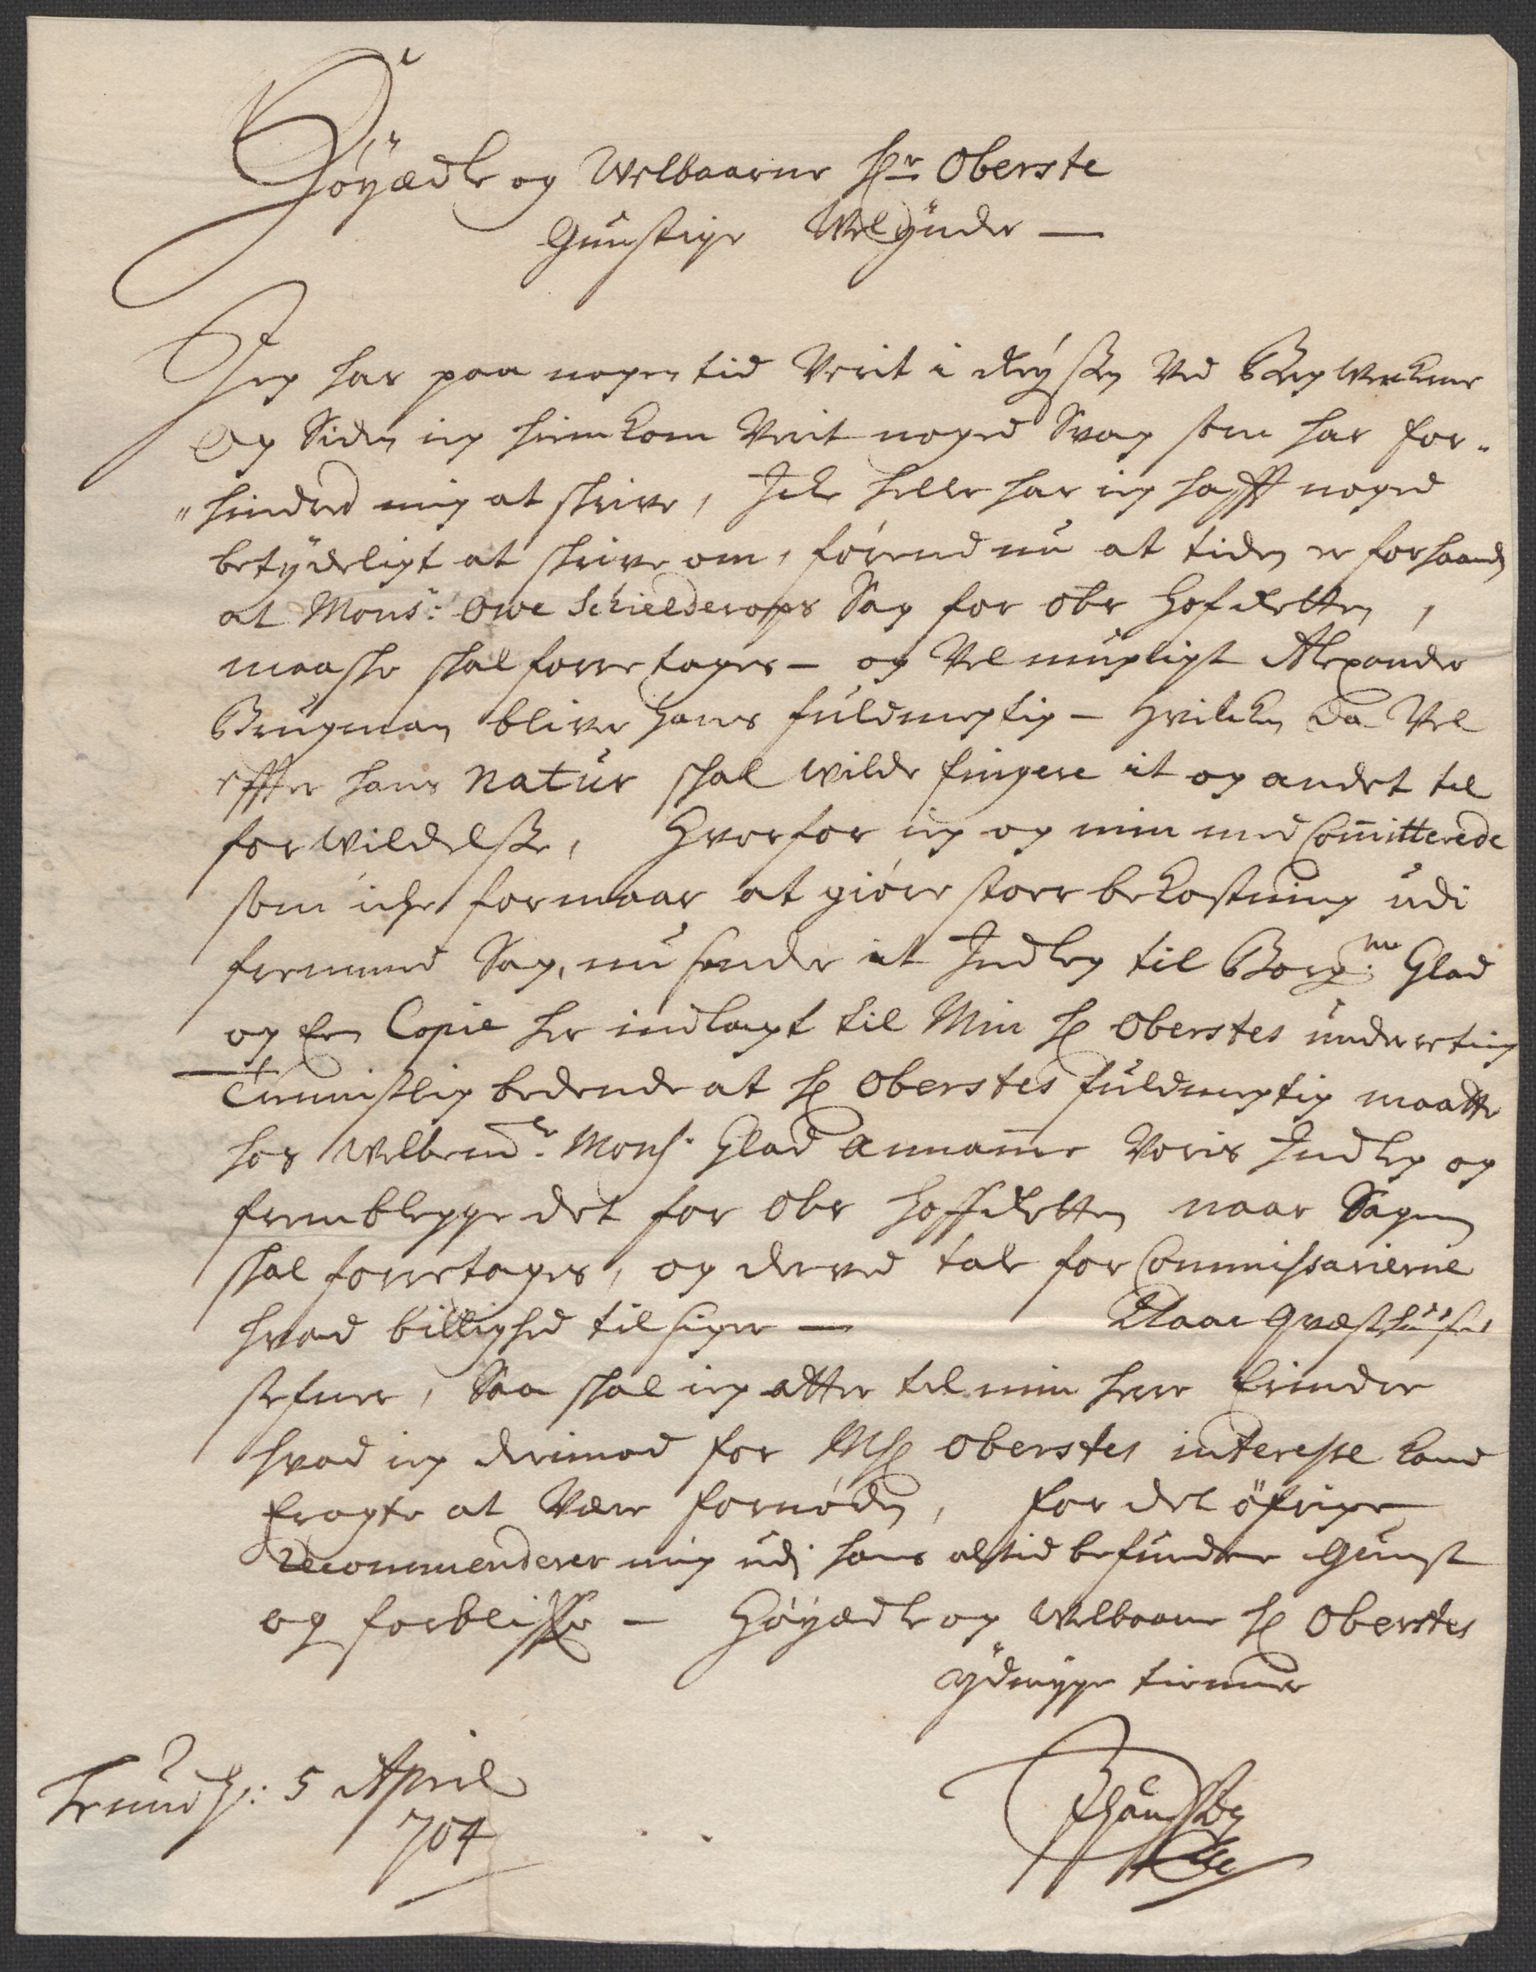 Höyædle og Welbaarne Hr Oberste
Gunstige Velÿnder —
Jeg har paa nogen tid Verit i Reÿsen Ved Bergwerkene
Og Siden ieg hiemkom Verit noged Svag som har for-
"hindred mig at skrive, Icke heller har ieg hafft noged
betÿdeligt at skrive om, förend nu at tiden er forhaanden
at Monsr: Owe Schielderops Sag for Ober Hof Retten,
maaske skal forretages — og Vel mueligt Alexander
Brugman bliver hans fuldmegtig — Hvilcken da Vel
effter hans Natur skal wilde fingere it og andet til
forwildelse, Hvorfor ieg og min med Committerede
som icke formaar at giöre stor bekostning udi
fremmed Sag, nu sender it Indleg til Borgm: Glad
og En Copie her indlagt til Min H Oberstes underretning
tienistlig bedende at H Oberstes fuldmegtig maatte
hos Welbemte Mons. Glad annamme Voris Indleg og
fremblegge det for Ober Hoff Retten naar Sagen
skal forretages, og derved tale for Commissarierne
hvad billighed tilsiger — Naar
stefner, Saa skal ieg atter til min Herr Erindre
hvad ieg derimod for MH Oberstes interesse kand
Eragte at være fornöden, for det öfrige
Recommenderer mig udi hans altid befundne Gunst
og forbliffr — Höyædle og Welbaarne H Oberstes
ÿdmyge tienner
Trundh: 5 April
704